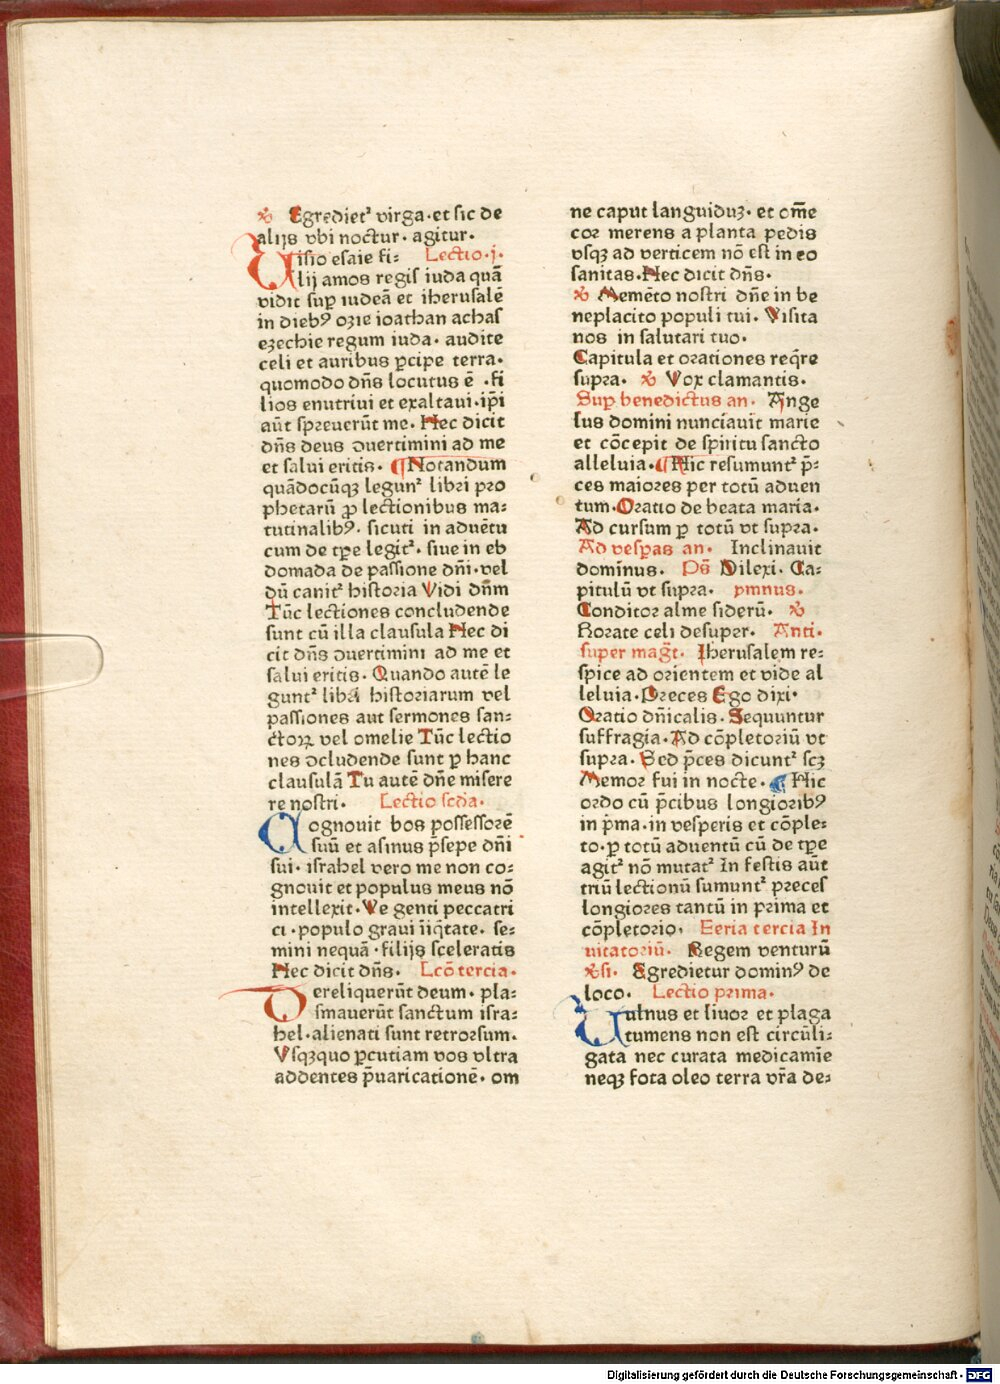 ℣ Egrediet᷑ virga·et sic de
alijs vbi noctur· agitur·
Uisio esaie fi= Lectio·j·
lij amos regis iuda quā
vidit sup̱ iudeā et iherusalē
in diebꝰ ozie ioathan achas
ezechie regum iuda· audite
celi et auribus ꝑcipe terra·
quomodo dn̄s locutus ē ·fi
lios enutriui et exaltaui·ip̄i
aūt spreuerūt me· Hec dicit
dn̄s deus ↄuertimini ad me
et salui eritis· ¶Notandum
quādocūqꝫ legun᷑ libri pro
phetarū ꝓ lectionibus ma=
tutinalibꝰ· sicuti in aduētu
cum de tꝑe legit᷑· siue in eb
domada de passione dn̄i·vel
dū canit᷑ historia Vidi dn̄m
Tūc lectiones concludende
sunt cū illa clausula Hec di
cit dn̄s ↄuertimini ad me et
salui eritis· Quando autē le
gunt᷑ libri historiarum vel
passiones aut sermones san=
ctoꝝ vel omelie Tūc lectio
nes ↄcludende sunt ꝑ hanc
clausulā Tu autē dn̄e misere
re nostri· Lectio scd̄a·
Cognouit bos possessorē
suū et asinus p̄sepe dn̄i
sui· israhel vero me non co=
gnouit et populus meus nō
intellexit·Ve genti peccatri
ci ·populo graui īiq̄tate· se=
mini nequā· filijs sceleratis
Hec dicit dn̄s· Lcō tercia·
Dereliquerūt deum· pla=
smauerūt sanctum isra=
hel·alienati sunt retrorsum·
Vsqꝫquo ꝑcutiam vos vltra
addentes p̄uaricationē· om
ne caput languiduꝫ· et om̄e
cor merens a planta pedis
vsqꝫ ad verticem nō est in eo
sanitas·Hec dicit dn̄s·
℣ Memēto nostri dn̄e in be
neplacito populi tui· Visita
nos in salutari tuo·
Capitula et orationes req̄re
supra· ℣ Vox clamantis·
Sup̱ benedictus an· Ange
lus domini nunciauit marie
et cōcepit de spiritu sancto
alleluia·¶Hic resumunt᷑ p̄=
ces maiores per totū aduen
tum·Oratio de beata maria·
Ad cursum ꝑ totū vt supra·
Ad vesꝑas an· Inclinauit
dominus· Ps̄ Dilexi· Ca=
pitulū vt supra· ymnus·
Conditor alme siderū· ℣
Rorate celi desuper· Anti·
super mag̅t· Iherusalem re=
spice ad orientem et vide al
leluia·Preces Ego dixi·
Oratio dn̄icalis·Sequuntur
suffragia·Ad cōpletoriū vt
supra· Sed p̄ces dicunt᷑ scꝫ
Memor fui in nocte·¶Hic
ordo cū p̄cibus longioribꝰ
in p̄ma·in vesperis et cōple=
to·ꝑ totū aduentū cū de tꝑe
agit᷑ nō mutat᷑ In festis aūt
triū lectionū sumunt᷑ preces
longiores tantū in prima et
cōpletorio· Feria tercia In
uitatoriū· Regem venturū
℣si· Egredietur dominꝰ de
loco· Lectio prima·
Uulnus et liuor et plaga
tumens non est circūli=
gata nec curata medicamīe
neqꝫ fota oleo terra vr̄a de=
Digitalisierung gefördert durch die Deutsche Forschungsgemeinschaft - DFG